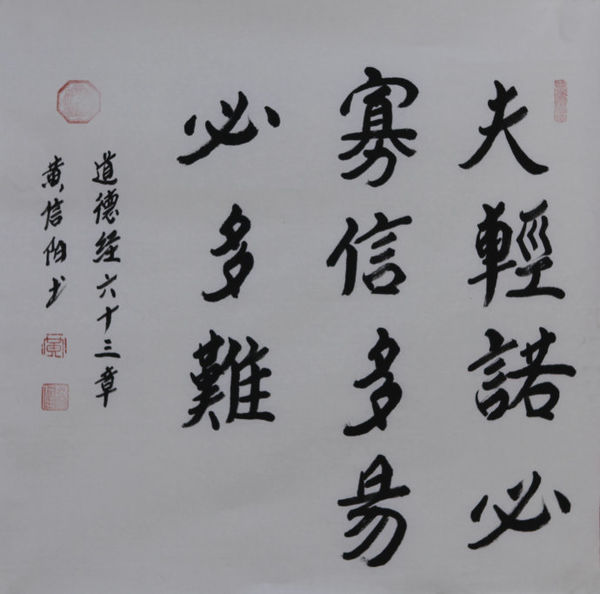 夫輕諾必
寡信多易
必多難
道德经六十三章
黄信阳书